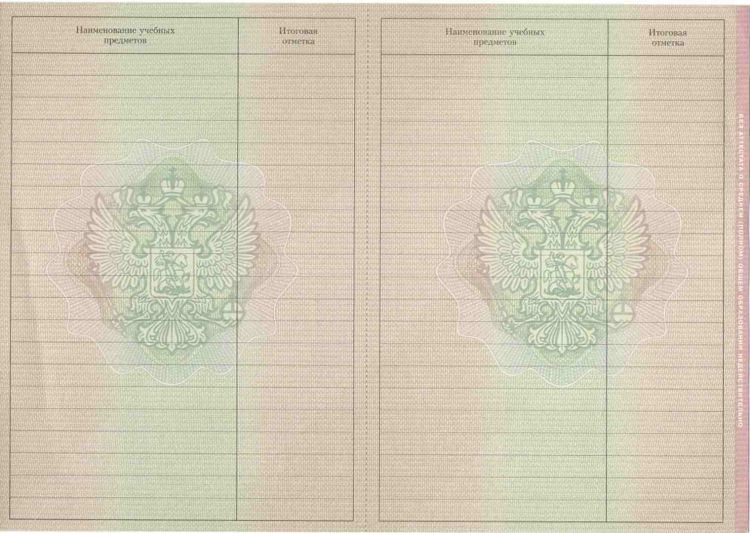 Наименование учебных
предметов
Итоговая
отметка
Наименование учебных
предметов
Итоговая
отметка
БЕЗ АТТЕСТАТА О СРЕДНЕМ (ПОЛНОМ) ОБЩЕМ ОБРАЗОВАНИИ НЕДЕЙСТВИТЕЛЬНО